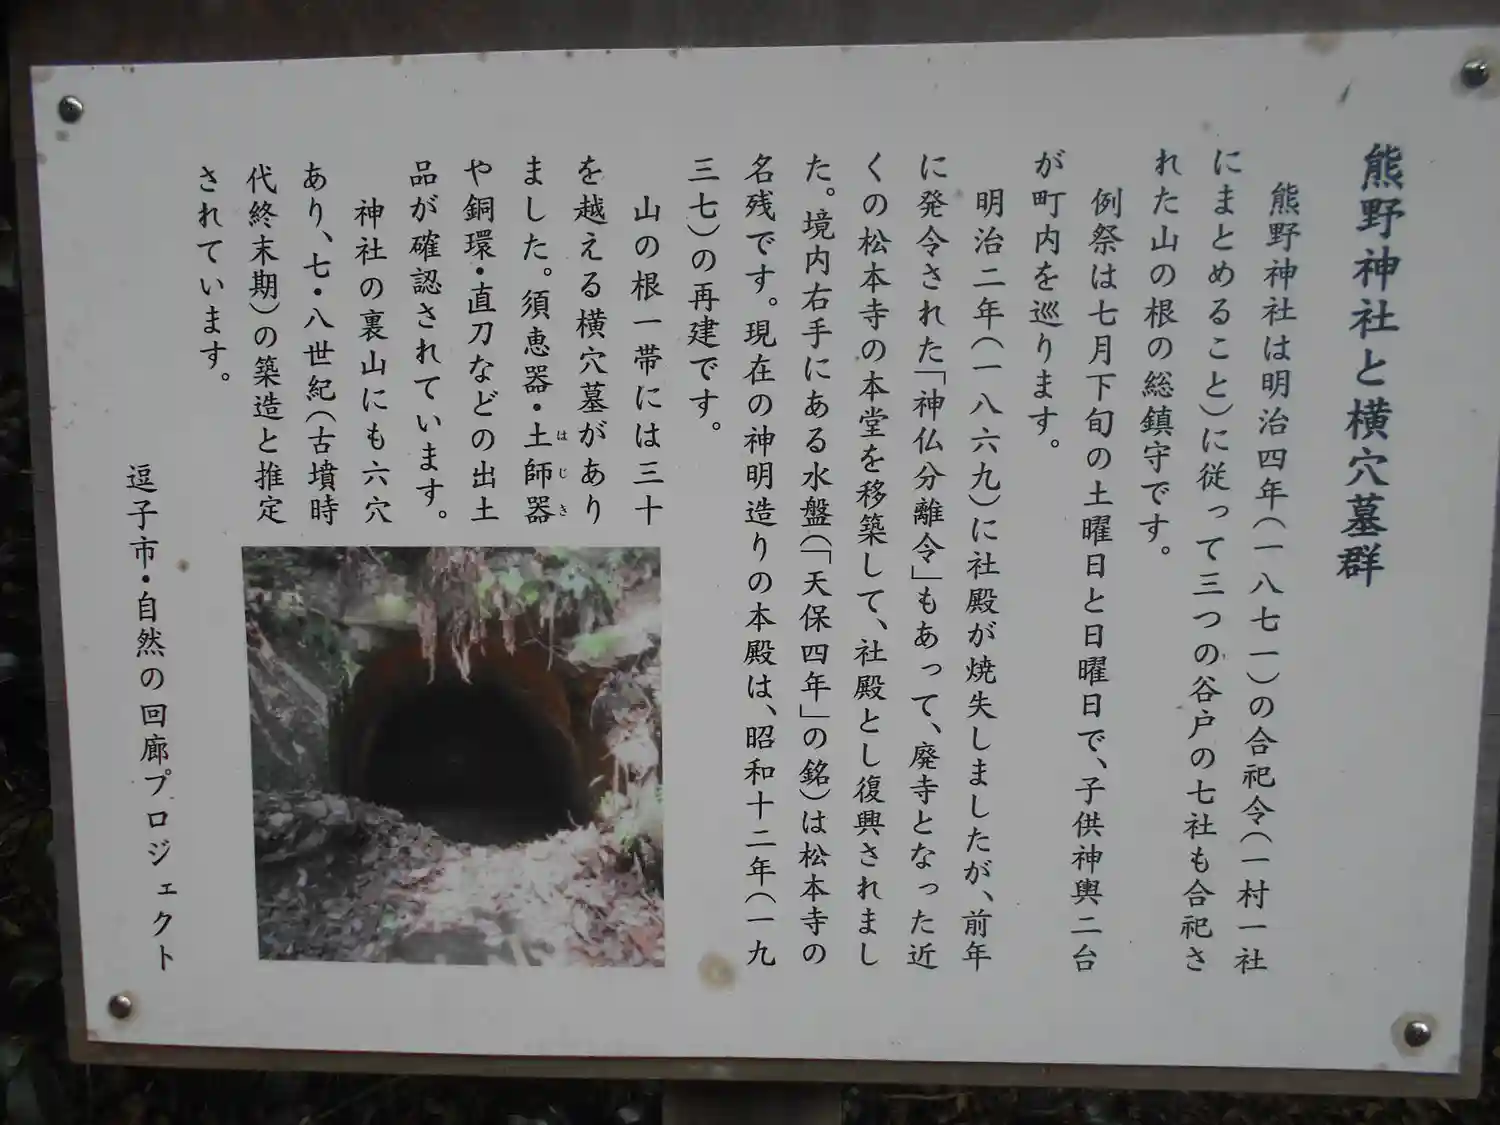 熊野神社と横穴墓群
熊野神社は明治四年(一八七一)の合祀令(一村一社
にまとめること)に従って三つの谷戸の七社も合祀さ
れた山の根の総鎮守です。
例祭は七月下旬の土曜日と日曜日で、子供神輿二台
が町内を巡ります。
明治二年(一八六九)に社殿が焼失しましたが、前年
に発令された「神仏分離令」もあって、廃寺となった近
くの松本寺の本堂を移築して、社殿とし復興されまし
た。境内右手にある水盤(「天保四年」の銘)は松本寺の
名残です。現在の神明造りの本殿は、昭和十二年(一九
三七)の再建です。
山の根一帯には三十
を越える横穴墓があり
ました。須恵器・土師器
はじき
や銅環・直刀などの出土
品が確認されています。
神社の裏山にも六穴
あり、七・八世紀(古墳時
代終末期)の築造と推定
されています。
逗子市・自然の回廊プロジェクト